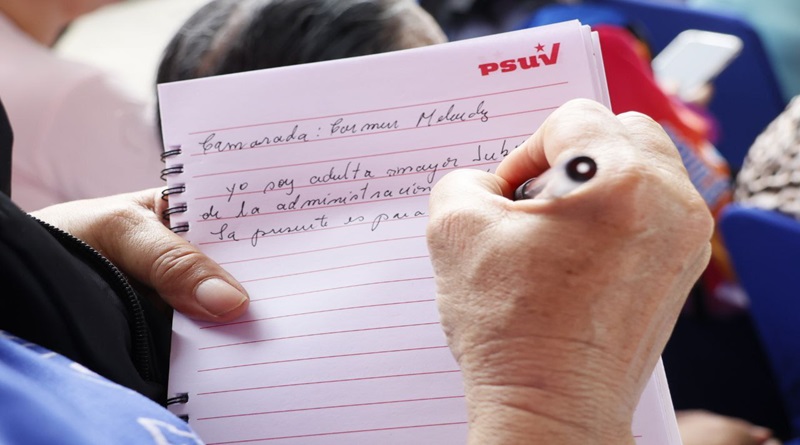 PSUV
Camarada: Carmen Melendez
yo soy adulta mayor Jubi
de la administración
la presente es para